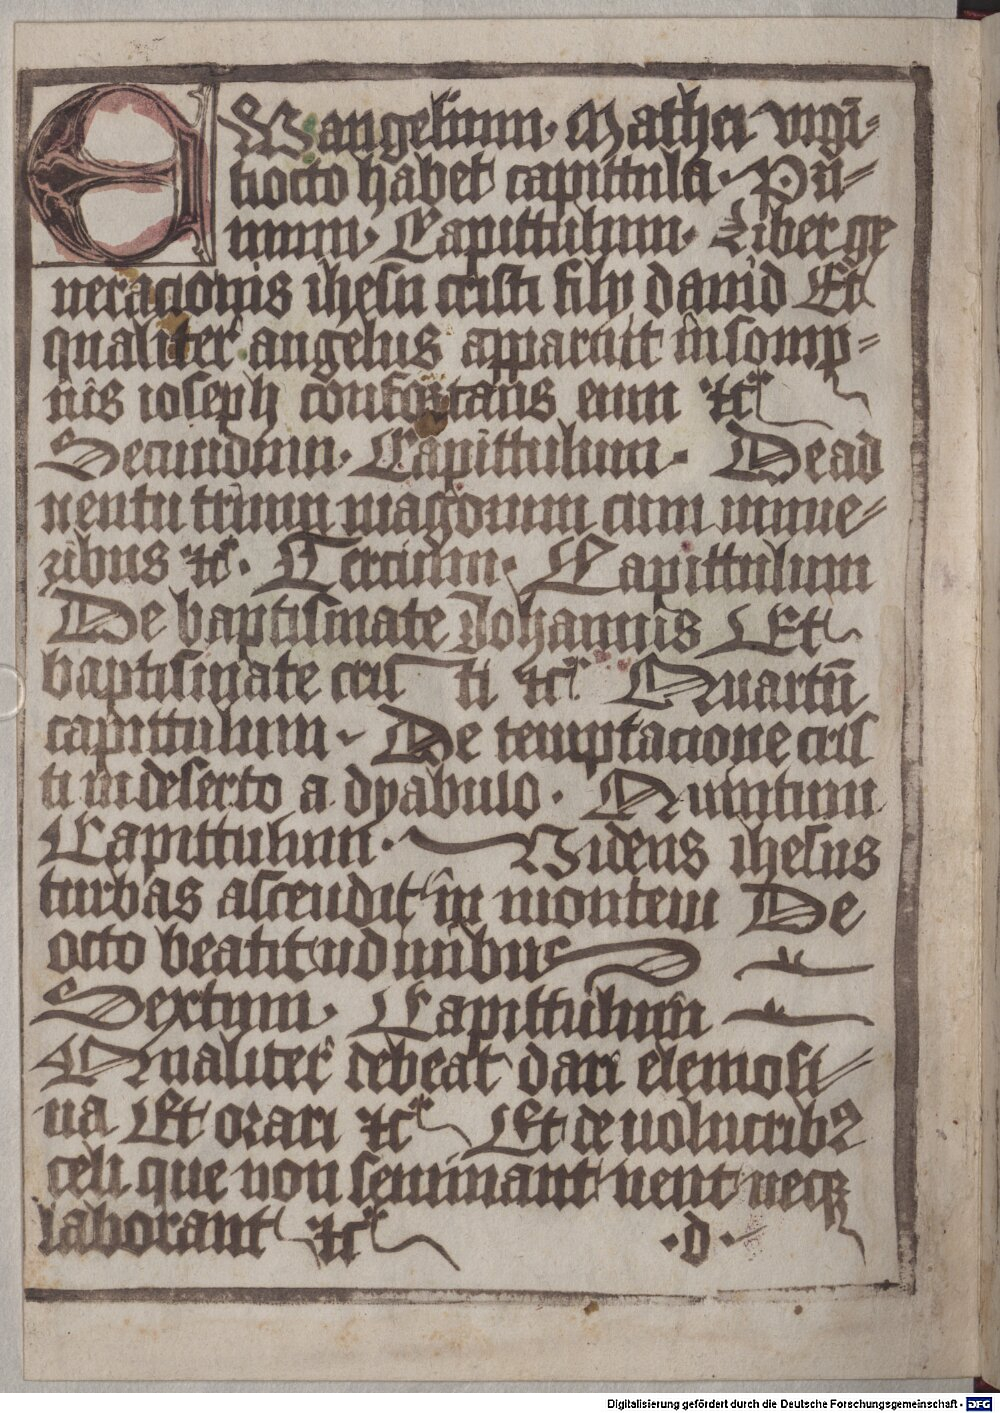 EWangelium · Mathei vigi-
tiocto habet capittula · Pri-
mum · Capittulum · Liber ge
neracionis ihesu cristi filij dauid Et
qualiter angelus apparuit in somp-
nis ioseph confortans eum ꝛcᷓ
Secundum · Capittulum · De ad
uentu trium magorum cum mune-
ribus ꝛcᷓ · Tercium · Capittulum
De baptismate Johannis Et
baptismate cris ti ꝛcᷓ Quartū
capittulum · De temptacione cris
ti in deserto a dyabulo · Quintum
Capittulum · Videns ihesus
turbas ascendit in montem De
octo beatitudinibus
Sextum · Capittulum
Qualiter debeat dari elemosi-
na Et orari ꝛcᷓ Et de uolucribꝫ
celi que non seminant nent necꝫ
laborant ꝛcᷓ · d ·
Digitalisierung gefördert durch die Deutsche Forschungsgemeinschaft - DFG